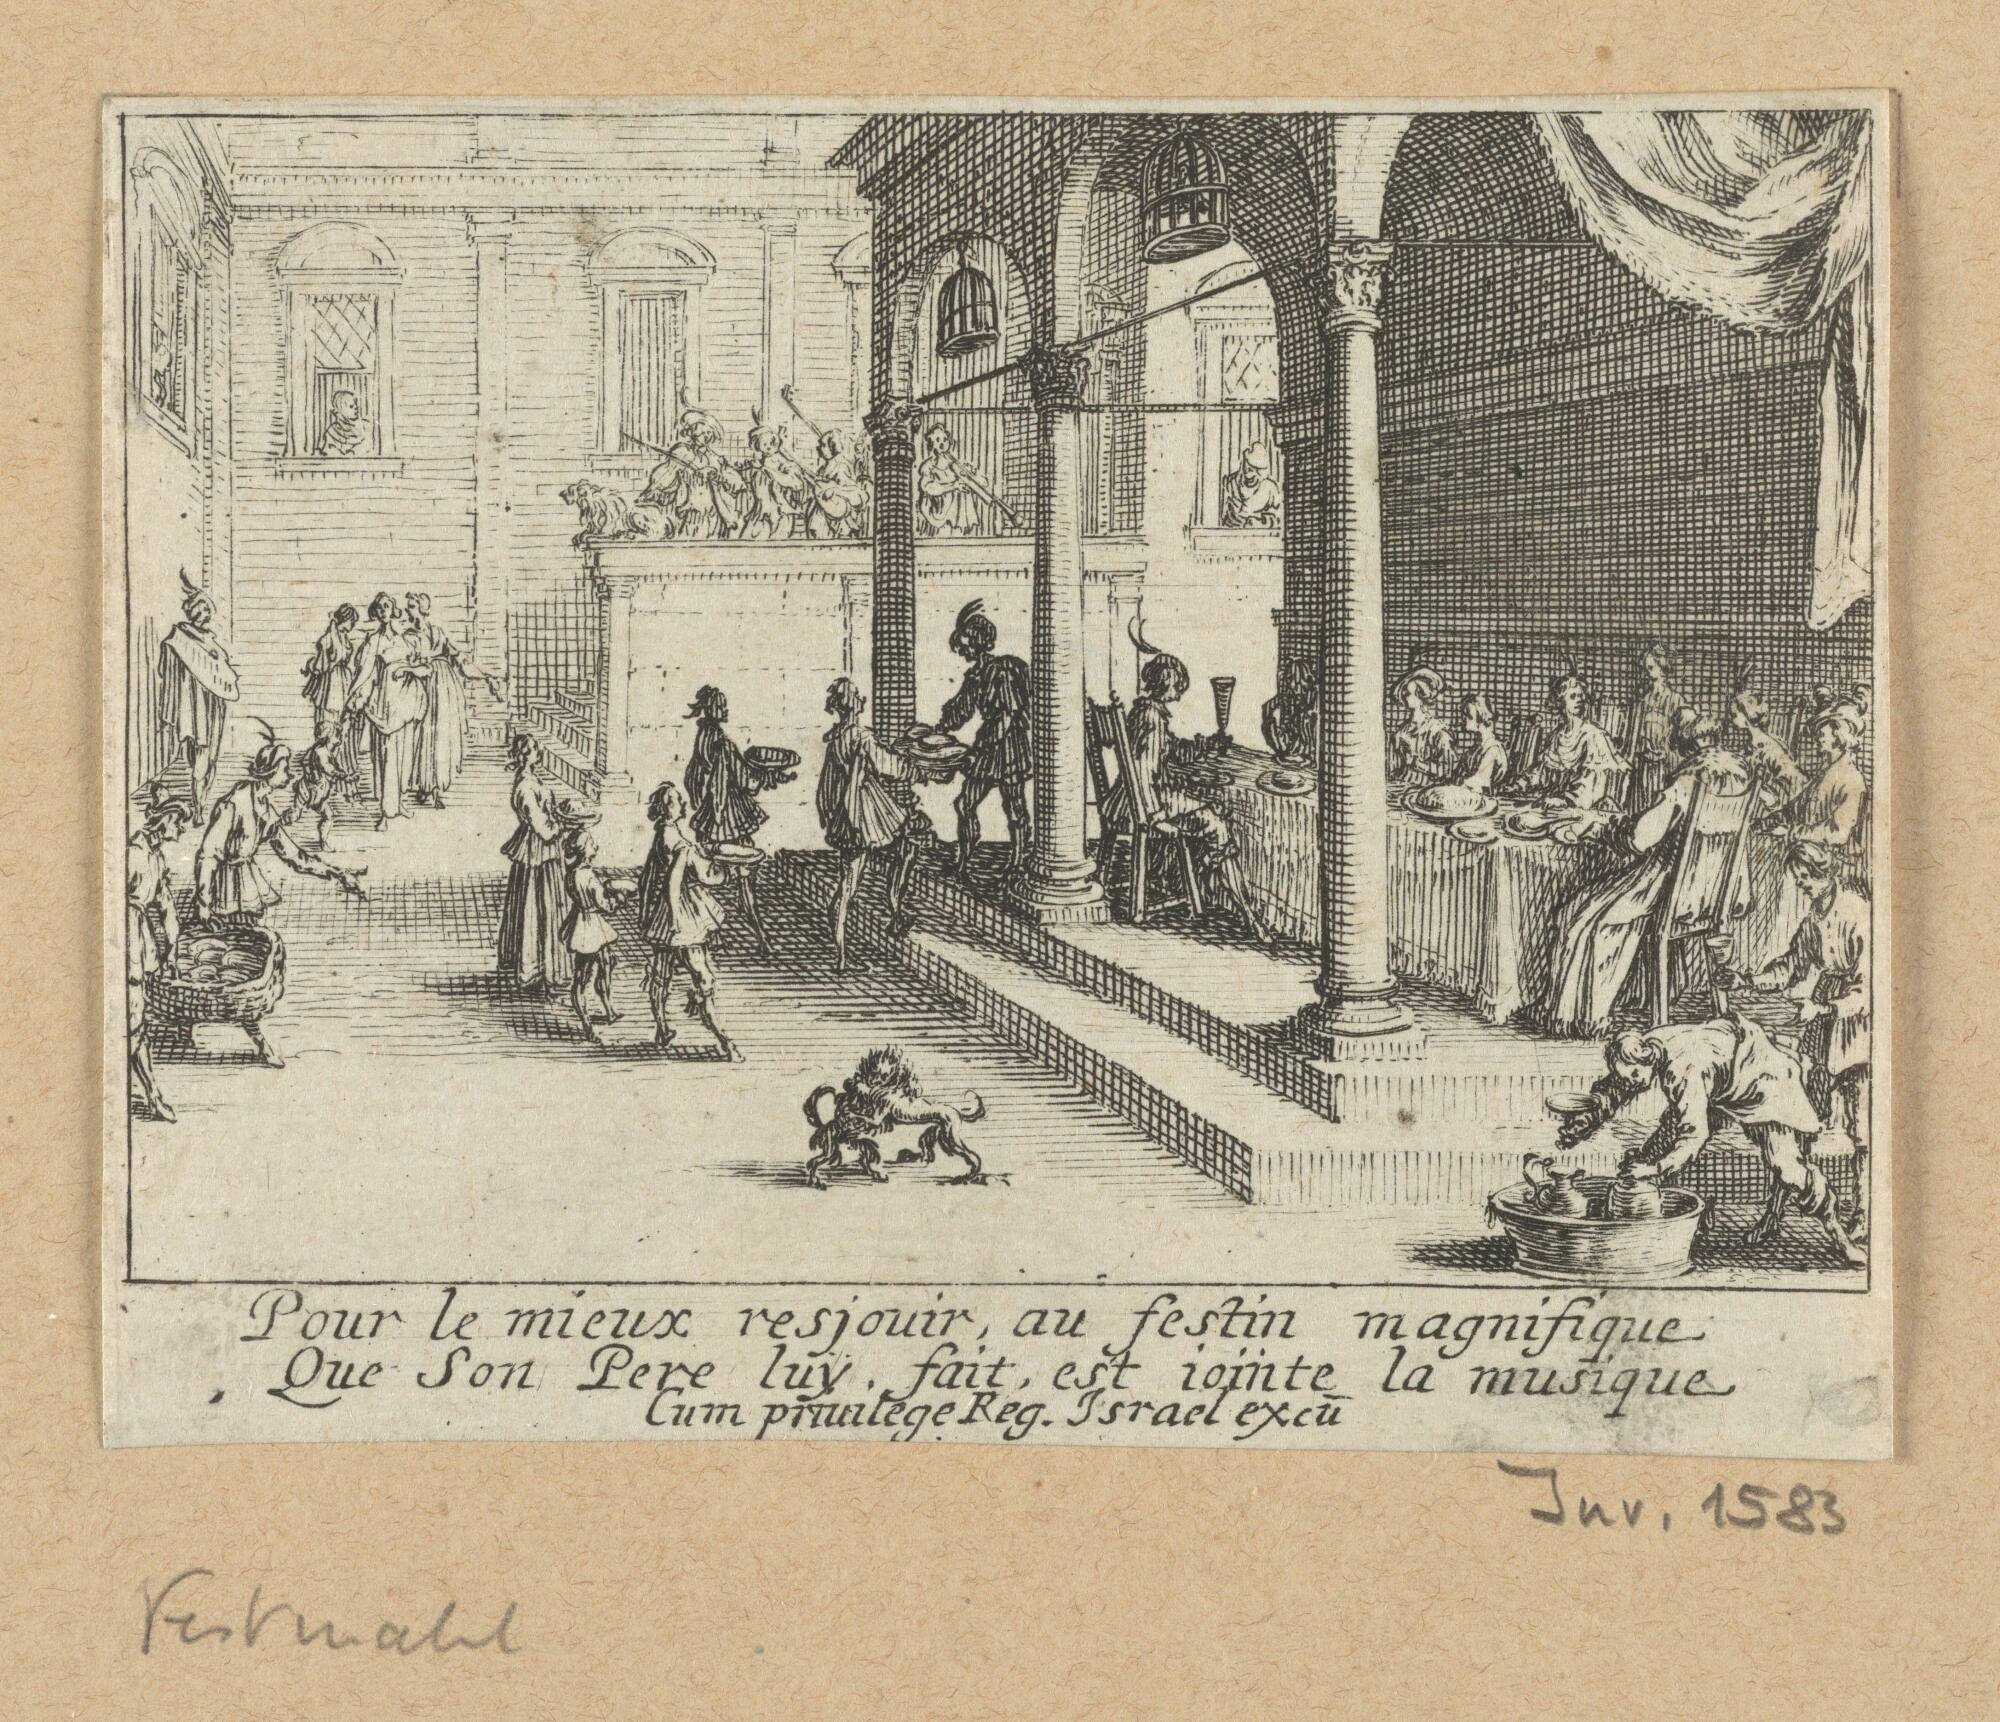 Pour le mieux resjouir, au festin magnifique
Que Son Pere luy, fait, est iointe la musique
Cum priuilege Reg. Israel excū
Inv. 1583
Festmahl